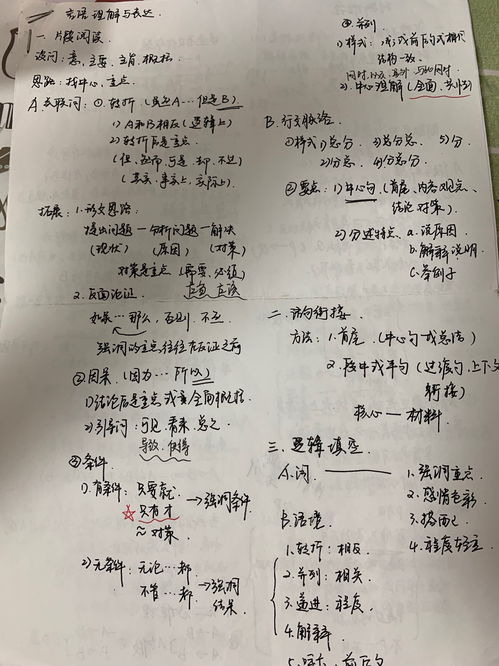 言语理解与表达
一、片段阅读
提问：意、主要、主旨、概括
思路：找中心、重点
A.关联词：①转折（虽然A…但是B）
1）A和B相反（逻辑上）
2）转折后是重点
（但、然而、可是、却、不过）
（其实、事实上、实际上）
拓展：1.行文思路：
提出问题—分析问题—解决
（现状）（原因）（对策）
对策是重点（需要、必须）
应负 应该
2.反面论证
如果…那么，否则，不然
强调的重点往往在反证之前
②因果（因为…所以）
1）结论后是重点或者全面概括
2）引导词：可见、看来、总之
导致、使得
③条件
1）有条件：只要就 → 强调条件
☆只有才
≈对策
2）无条件：无论…都
不管…都 → 强调结果
④并列
1）样式：形式或前后句式相似
结构一致、
同时、以及、另外、与此同时
2）中心理解（全面、共性）
B.行文脉络
①样式 1）总分 3）总分总 5）分
2）分总 4）分总分
②要点：1）中心句（首尾、内容观点、
结论对策）
2）分述特点 a.说原因
b.解释说明
c.举例子
二、语句衔接
方法：1.首尾（中心句或总结）
2.段中或半句（过渡句，上下文
衔接）
核心—材料
三、逻辑填空
A.词 1.强调重点
2.感情色彩
3.搭配
4.程度轻重
B.语境
1.转折：相反
2.并列：相关
3.递进：程度
4.解释